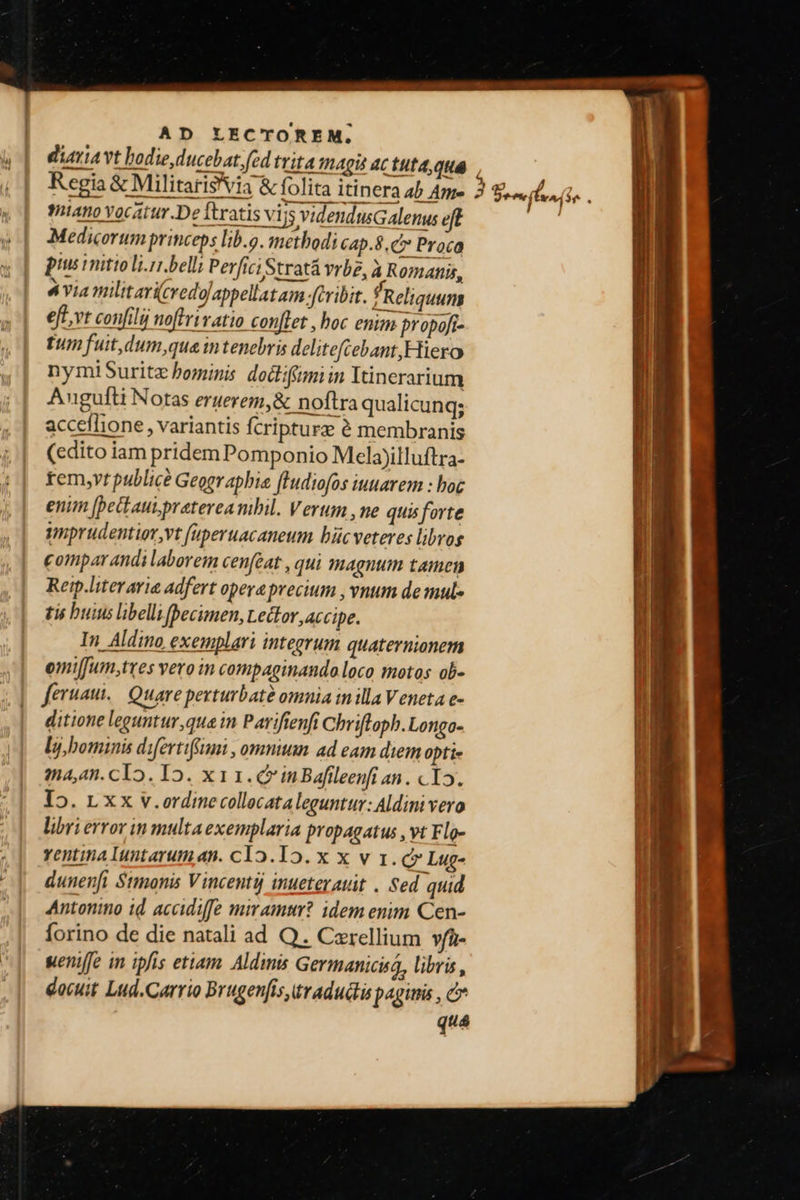 AD LECTOREM.
diaria vt hodie, ducebat, ſed trita magis ac tuta, qua
Regia & Militaris Via & ſolita itinera ab Am-
miano vocatur. De ſtratis vijs videndus Galenus eſt
Medicorum princeps lib. 9. methodi cap. 8. & Proco
pius initio li. 11. belli Perſici, Stratá vrbē, à Romanis,
à via militari (credo) appellatam ſcribit. Reliquum
eſt, vt conſilij noſtri ratio conſtet, hoc enim propoſi-
tum fuit, dum, quæ in tenebris deliteſcebant, Hiero
nymi Suritæ hominis doctiſſimi in Itinerarium
Auguſti Notas eruerem, & noſtra qualicunq;
acceſſione, variantis ſcripturæ è membranis
(edito iam pridem Pomponio Mela) illuſtra-
rem, vt publicè Geographiæ ſtudioſos iuuarem : hoc
enim ſpectaui, præterea nihil. Verum, ne quis forte
imprudentior, vt ſuperuacaneum huc veteres libros
comparandi laborem cenſeat, qui magnum tamen
Reip. literariæ adfert operæ precium, vnum de mul-
tis huius libelli ſpecimen, Lector, accipe.
In Aldino exemplari integrum quaternionem
omiſſum, tres vero in compaginando loco motos ob-
ſeruaui. Quare perturbatè omnia in illa Veneta e-
ditione leguntur, quæ in Pariſienſi Chriſtoph. Longo-
lij, hominis diſertiſſimi, omnium ad eam diem opti-
ma, an. cIↃ. IↃ. XII. & in Baſileenſi an. cIↃ.
IↃ. LXXV. ordine collocata leguntur: Aldini vero
libri error in multa exemplaria propagatus, vt Flo-
rentina Iuntarum an. cIↃ. IↃ. XXVI. & Lug-
dunenſi Simonis Vincentij inueterauit . Sed quid
Antonino id accidiſſe miramur? idem enim Cen-
ſorino de die natali ad Q. Cærellium vſu-
ueniſſe in ipſis etiam Aldinis Germanicisq́, libris,
docuit Lud. Carrio Brugenſis, traductis paginis, &
quæ